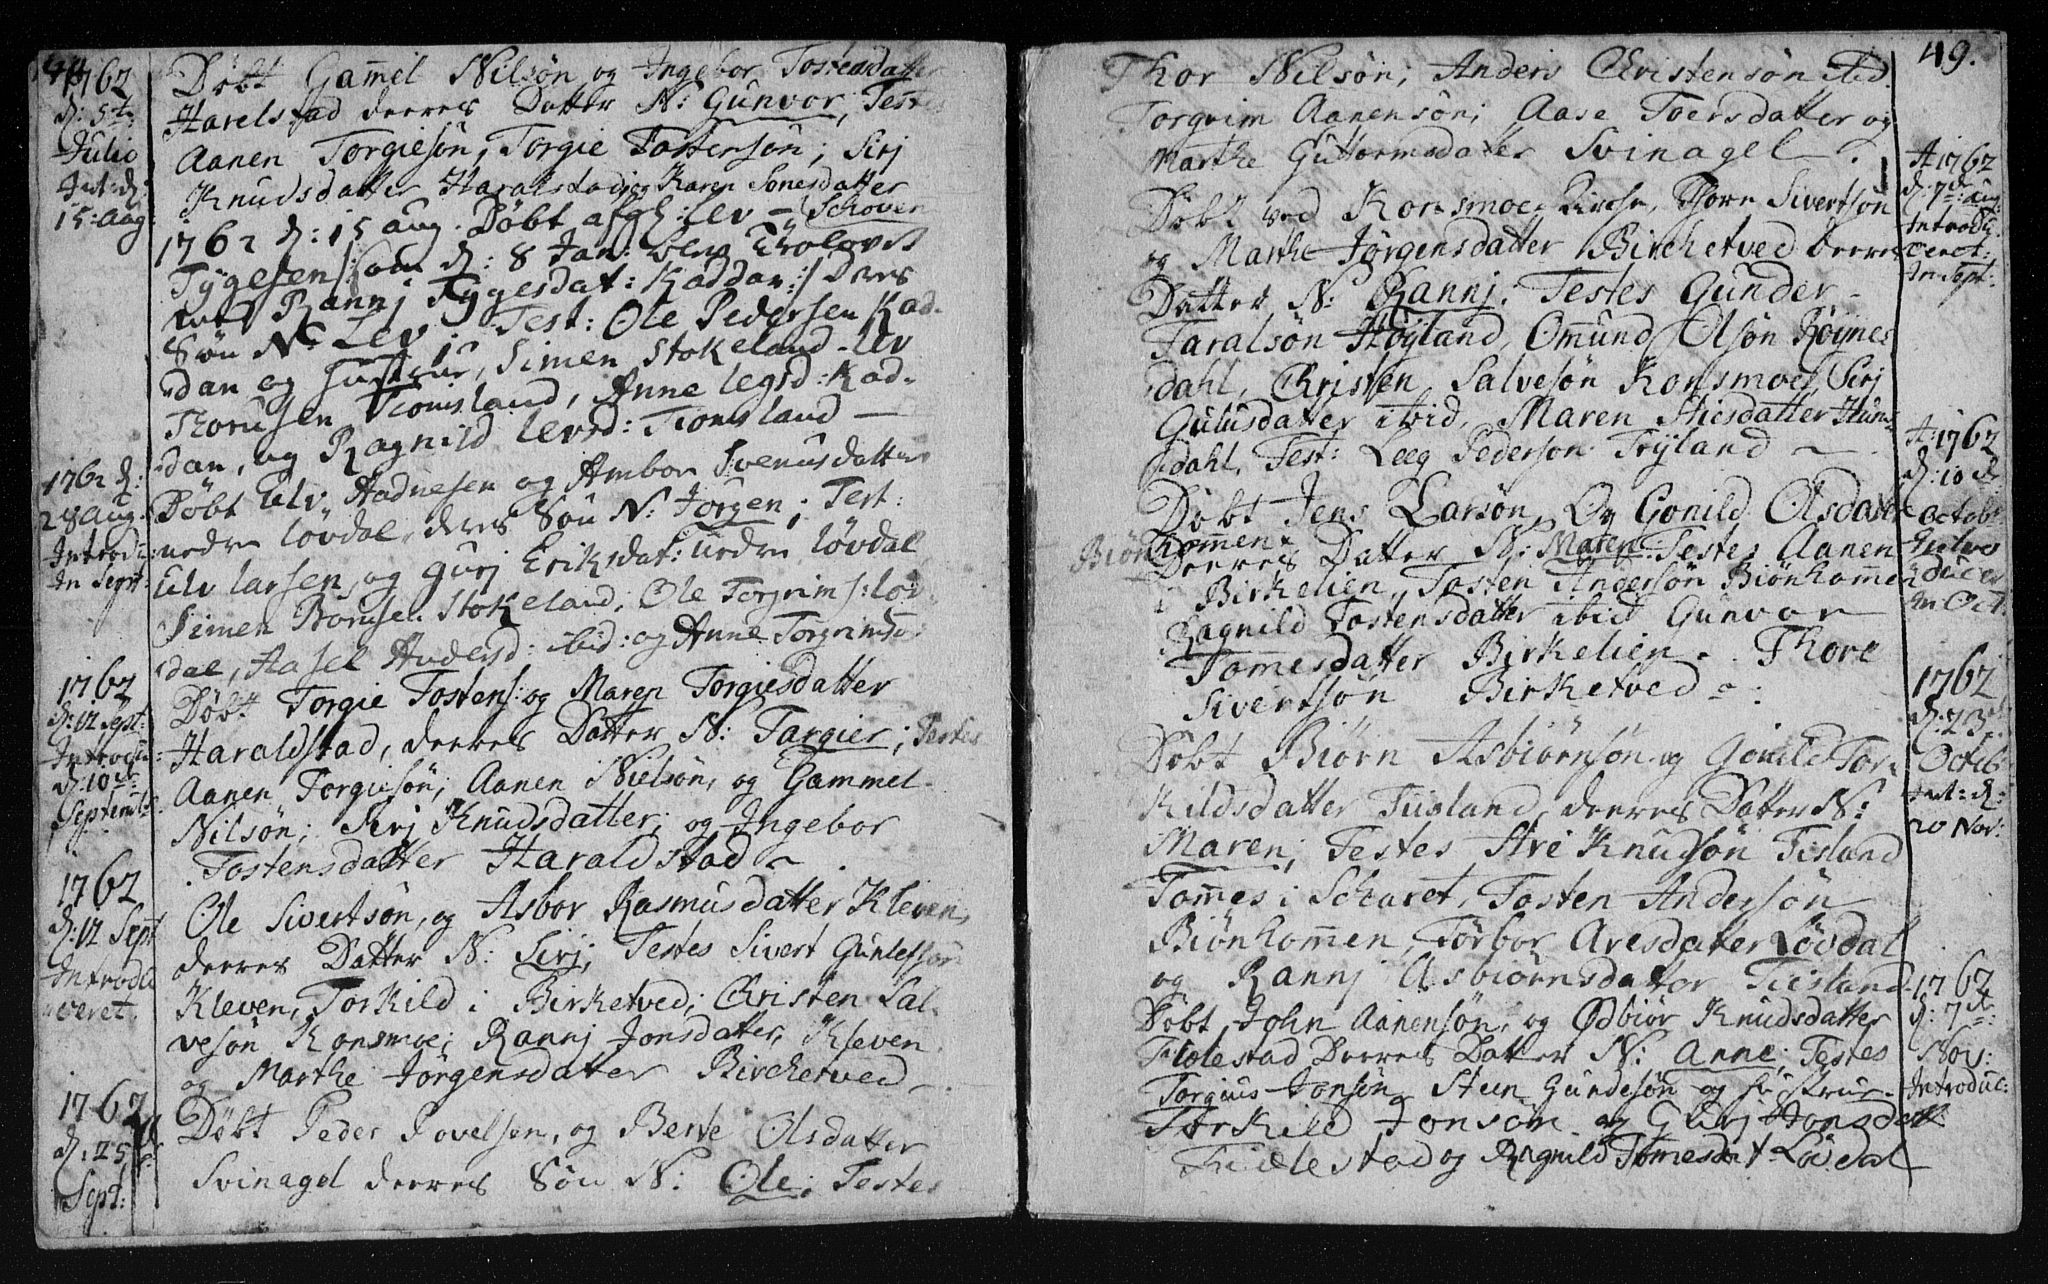 1762
d: 5te
Julio
Int: d:
15: aug
Döbt Gam̄el Nilsön og Ingebor Tostensdatter
Harelstad deeres Datter N: Gunvor, Testes
Aanen Torgiesön, Torgie Tostensön; Sirj
Knudsdatter Haralstad; og Karen Jonesdatter
Schoven
1762 d: 15 aug. Döbt afgl: lev
Tygesen /: som d: 8 Jan: blev
med Rannj Tygesdat: Kaddan :/ Deres
Sön N: Lev. Test: Ole Pedersen Kad-
dan og hustrue, Simen Stokeland. Lev
Thorusen Tomsland, Anne legsd: Kad-
dan, og Ragnild levsd: Tomsland —
1762 d:
28 aug.
Introd:
In Sept:
Döbt Ulv Aadnesen og Ambor Svenusdatter
nedre lövdal, deres Sön N: Jörgen; Test:
Ulv larsen, og gurj Eriksdat: nedre lövdal
Simen Stokeland, Ole Torgrims: löv-
dal, Aasel Andersd: ibid: og Anne Torgrims
1762
d: 12 Sept:
Introdu:
d: 10de
Septemb:
Döbt Torgie Tostens: og Maren Torgiesdatter
Haraldstad, deeres Datter N: Targier; Testes
Aanen Torgiesön; Aanen Nielsön, og Gammel
Nilsön; Sirj Knudsdatter; og Ingebor
Tostensdatter Haraldstad ~
1762
d: 12 Sept
Introdu
ceret.
Ole Sivertsön, og Asbor Rasmusdatter Kleven,
deeres Datter N: Sirj; Testes Sivert Gunlefsön
Kleven, Torkild i Birketved; Christen Sal-
vesön Konsmoe; Rannj Jonsdatter, Kleven
og Marthe Jörgensdatter Birchetved
1762
d: 25
Sept:
Döbt Peder Povelsen, og Berte Olsdatter
Svinagel deeres Sön N: Ole; Testes
49.
Thor Nilsön; Anders Christensön ibid
Torgrim Aanensön; Aase Toersdatter og
Marthe Guttormsdatter Svinagel
A: 1762
d: 7de aug
Introdu
ceret:
In Sept:
Döbt ved Konsmoe Kirche, Thore Sivertsön
og Marthe Jörgensdatter Birchetved deeres
Datter N: Rannj. Testes Gunder
Taralsön Högland, Omund Olsön Röynes
dahl, Christen Salvesön Konsmoe, Sirj
Gulusdatter ibid, Maren Stiesdatter Hun-
dahl, Test: Leeg Pedersön Tryland ~
A: 1762
d: 10de
Octob:
In Oct:
Döbt Jens Larsön Og Gonild Olsdatter
Biönkommen
Deeres Datter N: Maren Testes Aanen
i Birkelien, Tosten Andersön Biönkom̄en
Ragnild Tostensdatter ibid Gunvor
Tom̄esdatter Birkelien. Thore
Sivertsön Birketved
1762
d: 23
Octob
Int: d:
20 Nov:
Döbt Biörn Asbiörnsön og Gonild Tor-
kildsdatter Tiigland, deeres Datter N:
Maren; Testes Are Knudsön Tisland
Tom̄es i Scharet, Tosten Andersön
Biönkom̄en, Torbor Aresdatter Lövdal
og Rannj Asbiörnsdatter Tiisland
1762
d: 7de
Nov:
Introduc:
Döbt John Aanensön, og Ødbiör Knudsdatter
Fidlestad Deeres Datter N: Anne; Testes
Torgiius Jonsön, Steen Gundesön og hustrue
Torkild Jonsön og Gurj Jonsdatt
Fidlestad og Ragnild Tomesdat: Lövdal